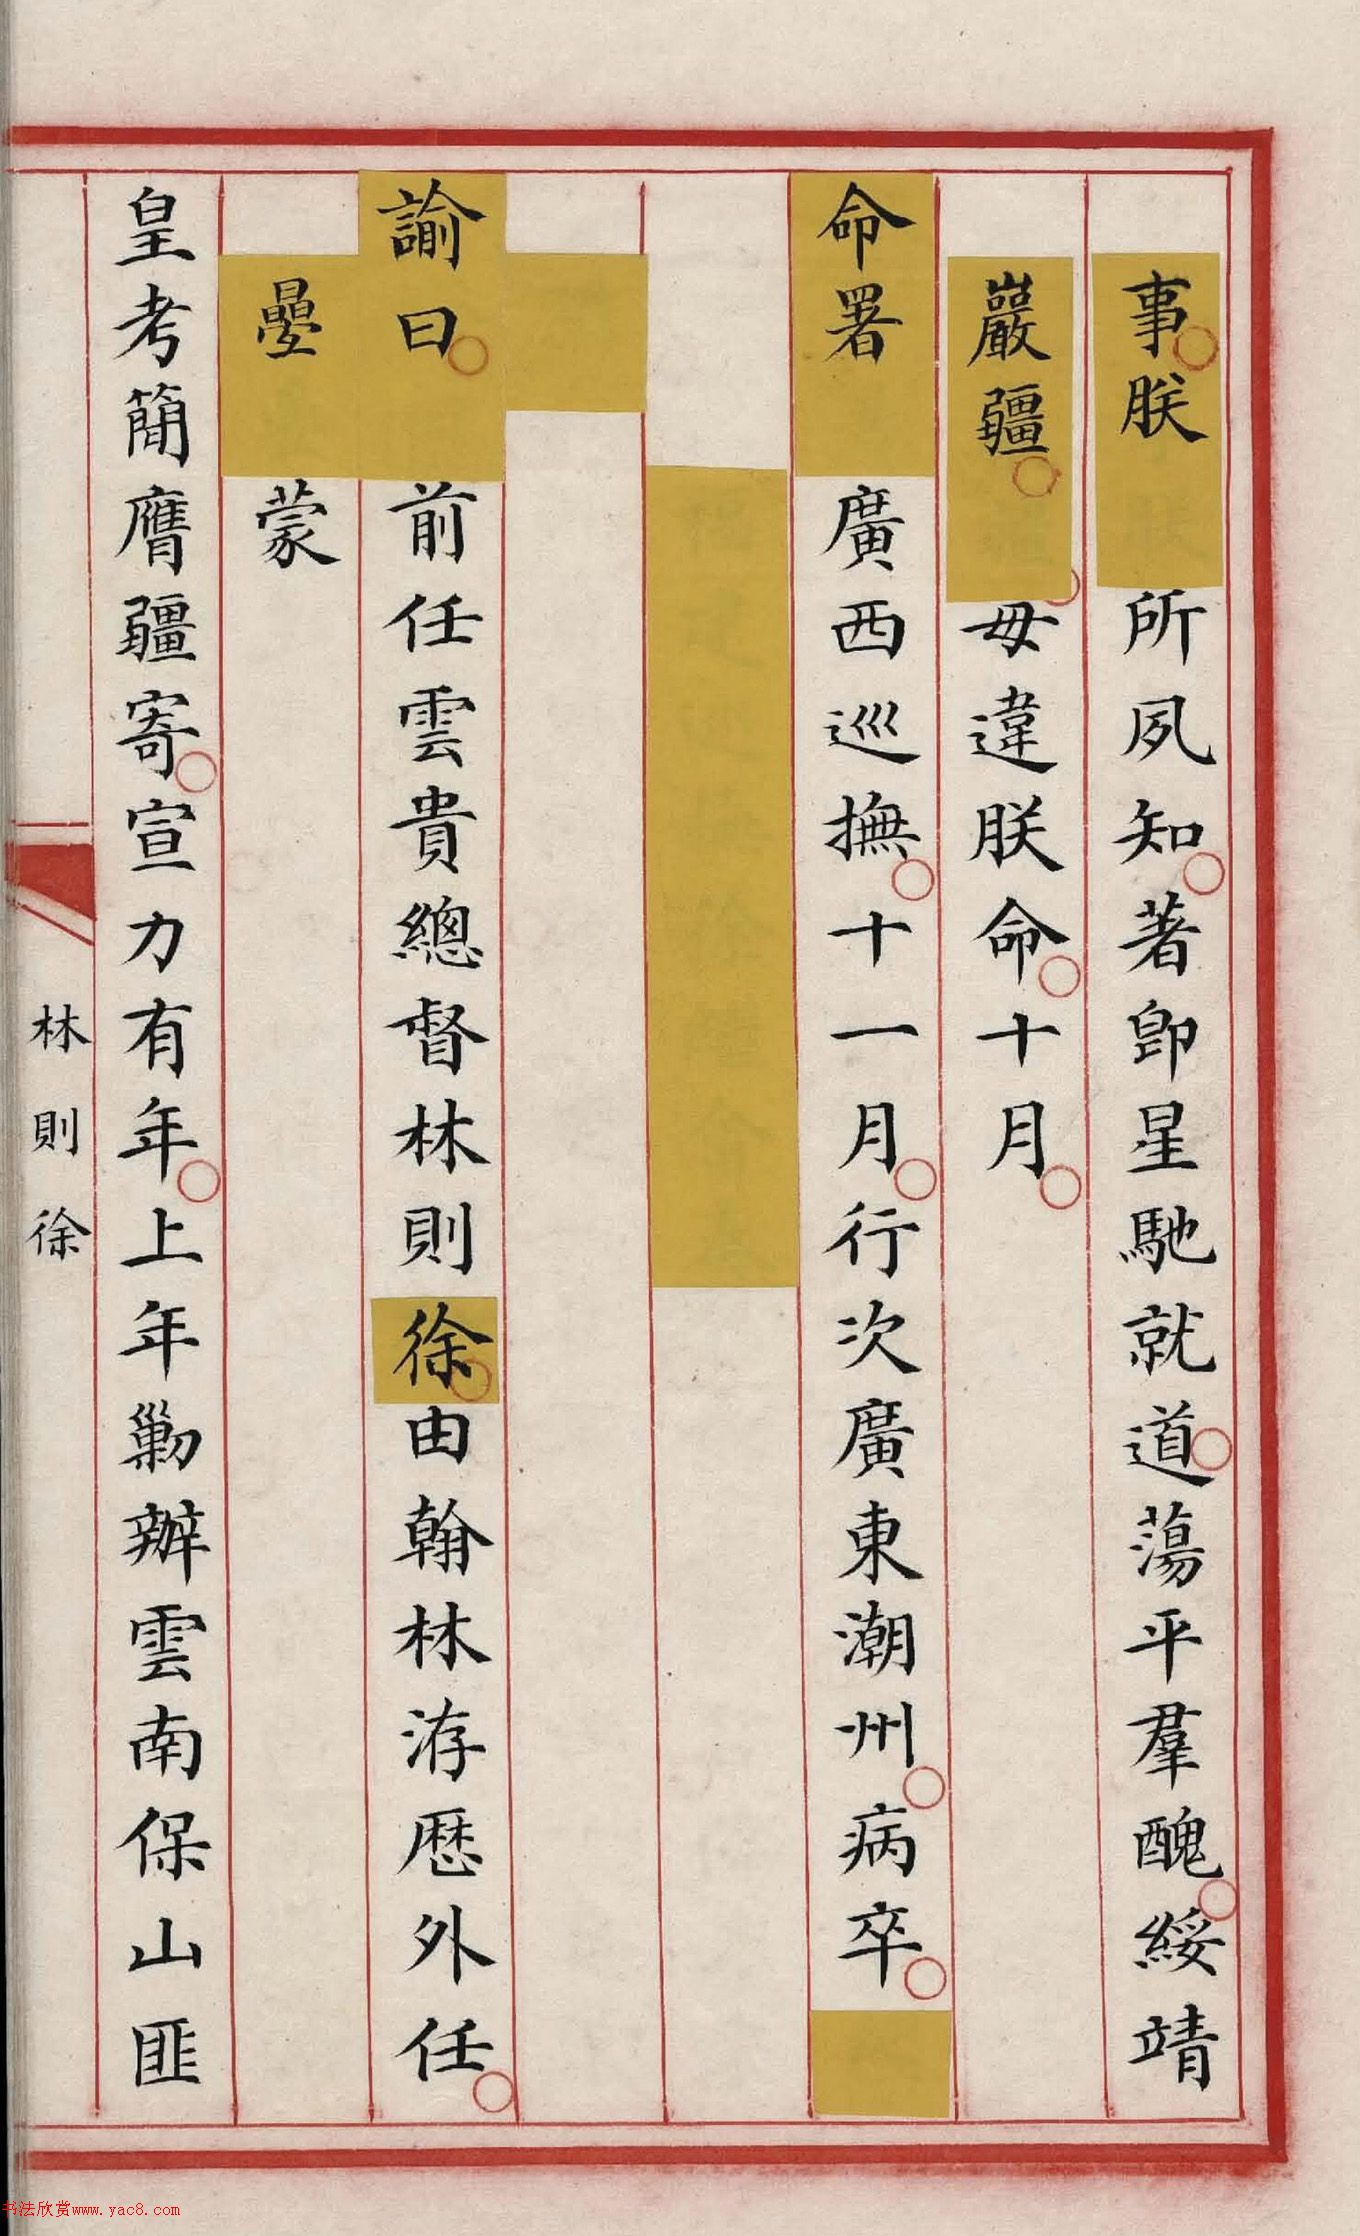 事朕所夙知著卽星馳就道蕩平羣醜綏靖
巖疆毋違朕命十月
命署廣西巡撫十一月行次廣東潮州病卒
諭曰前任雲貴總督林則徐由翰林洊歷外任
疊蒙
皇考簡膺疆寄宣力有年上年剿辦雲南保山匪
林則徐
书法欣赏www.yac8.com